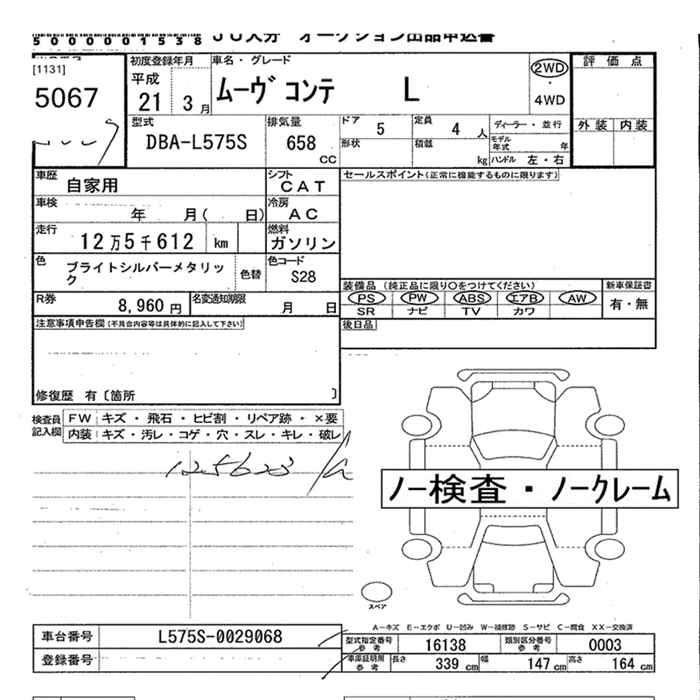 500000001538 JU大分 オークション出品申込書
[1131]
5067
初度登録年月
平成
21 3月
車名・グレード
ムーヴ コンテ L
2WD
・
4WD
評価点
外装 内装
型式
DBA-L575S
排気量
658
cc
ドア 5
定員 4 人
形状
積載 kg
ディーラー・並行
モデル年式 年
ハンドル 左・右
車歴 自家用
シフト CAT
セールスポイント(正常に機能するものに限ります)
車検 年 月( 日)
冷房 AC
走行 12万5千612 km
燃料 ガソリン
色 ブライトシルバーメタリック
色替
色コード S28
R券 8,960円
名変通知期限 月 日
装備品(純正品に限り○をつけてください)
PS PW ABS エアB AW
SR ナビ TV カワ
新車保証書
有・無
後日品
注意事項申告欄(不具合内容等は具体的に記入して下さい)
修復歴 有〔箇所 〕
検査員記入欄
FW キズ・飛石・ヒビ割・リペア跡・×要
内装 キズ・汚レ・コゲ・穴・スレ・キレ・破レ
125623
ノー検査・ノークレーム
スペア
A-キズ E-エクボ U-凹み W-補修跡 S-サビ C-腐食 XX-交換済
車台番号 L575S-0029068
登録番号
型式指定番号参考 16138
類別区分番号参考 0003
車庫証明用参考 長さ 339 cm 幅 147 cm 高さ 164 cm